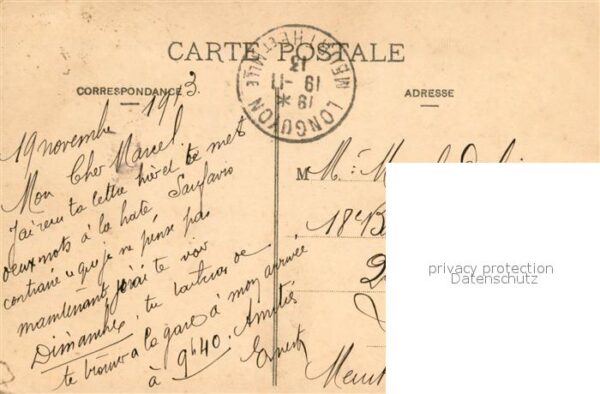 CARTE POSTALE
CORRESPONDANCE
ADRESSE
LONGUYON
MEURTHE ET Mlle
18 *
19 - 11
13
19 novembre 1913.
Mon Cher Marcel.
J'ai reçu ta lettre hier et te met
deux mots à la hate Sauf avis
contraire ce que je ne pense pas
maintenant j'irai te voir
Dimanche, tu tacheras de
te trouver a la gare à mon arrivée
à 9h40. Amitiés
Ernest
M r Marcel
18e B
2
Meur
privacy protection
Datenschutz